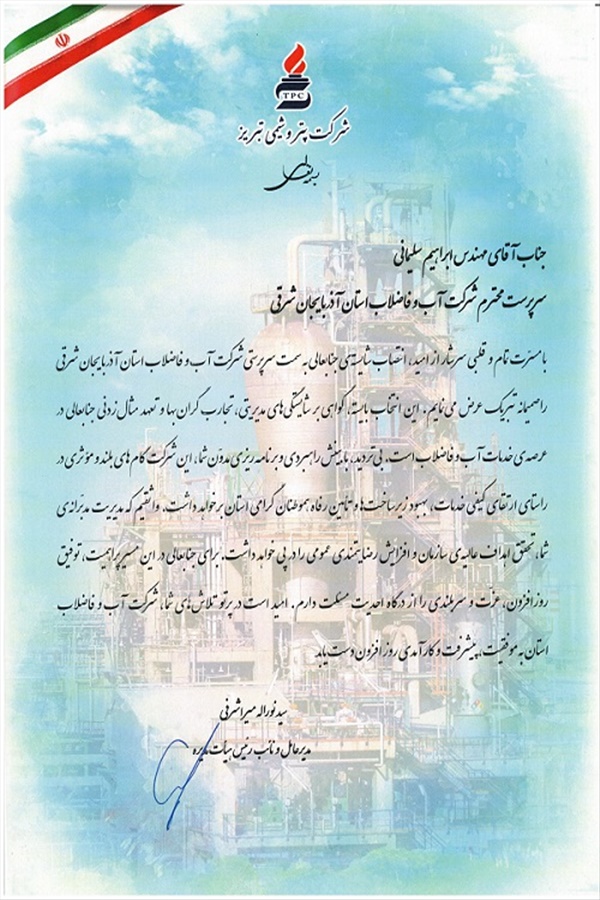 TPC
شرکت پتروشیمی تبریز
بسمه تعالی
جناب آقای مهندس ابراهیم سلیمانی
سرپرست محترم شرکت آب و فاضلاب استان آذربایجان شرقی
با مسرت تمام و قلبی سرشار از امید، انتصاب شایسته‌ی جنابعالی به سمت سرپرستی شرکت آب و فاضلاب استان آذربایجان شرقی
را صمیمانه تبریک عرض می نمایم. این انتخاب بایسته، گواهی بر شایستگی‌های مدیریتی، تجارب گران بها و تعهد مثال زدنی جنابعالی در
عرصه‌ی خدمات آب و فاضلاب است. بی تردید، با بینش راهبردی و برنامه ریزی مدوّن شما، این شرکت گام های بلند و مؤثری در
راستای ارتقای کیفی خدمات، بهبود زیرساخت‌ها و تأمین رفاه هموطنان گرامی استان برخواهد داشت. واثقیم که مدیریت مدبّرانه‌ی
شما، تحقق اهداف عالیه‌ی سازمان و افزایش رضایتمندی عمومی را در پی خواهد داشت. برای جنابعالی در این مسیر پراهمیت، توفیق
روز افزون، عزّت و سربلندی را از درگاه احدیت مسئلت دارم. امید است در پرتو تلاش های شما، شرکت آب و فاضلاب
استان به موفقیت، پیشرفت و کارآمدی روز افزون دست یابد
سید نوراله میراشرفی
مدیرعامل و نائب رئیس هیأت مدیره